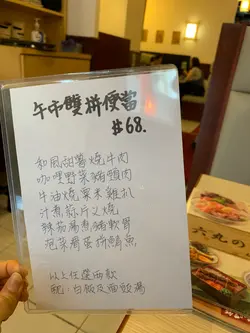 午市雙拼便當
$68.
和風甜薯燒牛肉
咖哩野菜豬頸肉
牛油燒粟米雞扒
汁煮蒜片乂燒
辣茄湯煮豬軟骨
泡菜蛋拼鯖魚
以上任選兩款
配:白飯及麵豉湯
六丸の